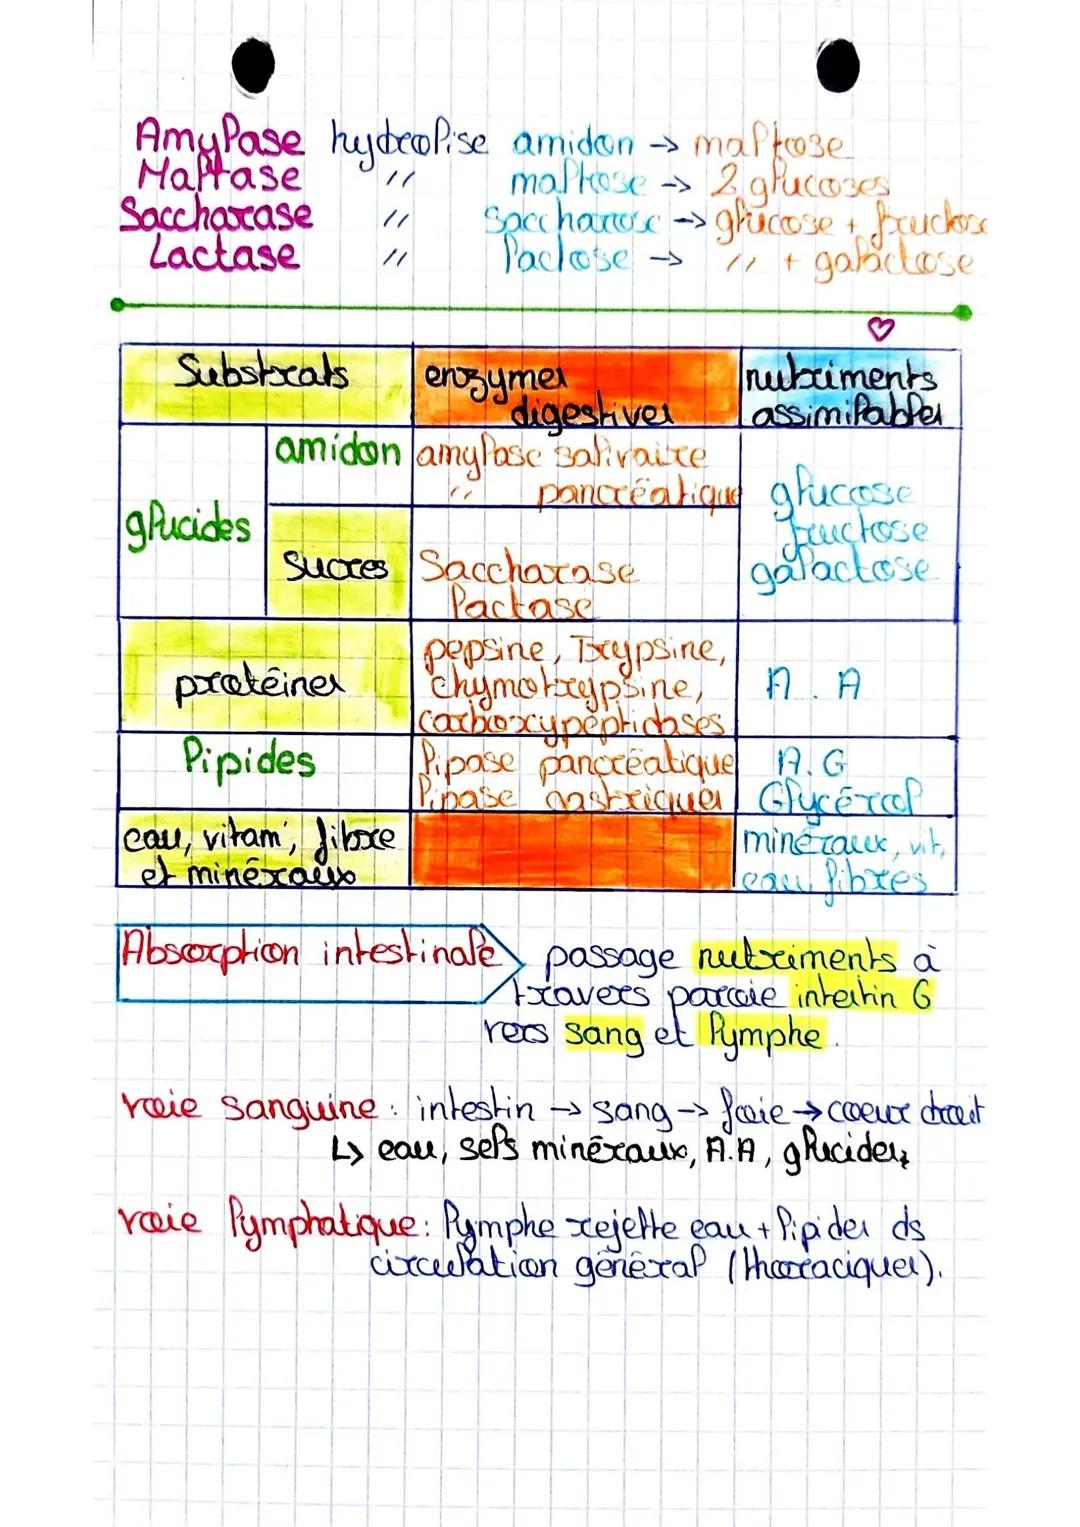 Amylase hydrolise amidon → maltose
Maltase " maltose → 2 glucoses
Saccharase " saccharose → glucose + fructose
Lactase " lactose → " + galactose
Substrats enzymes digestives nutriments assimilables
glucides amidon amylase salivaire
" pancréatique
glucose
fructose
galactose
sucres Saccharase
lactase
protéines pepsine, Trypsine,
chymotrypsine,
carboxypeptidases
A.A
lipides lipase pancréatique
lipase gastriques
A.G
Glycérol
eau, vitam', fibre
et minéraux
minéraux, vit,
eau, fibres
Absorption intestinale passage nutriments à
travers paroie intestin G
vers sang et lymphe.
voie sanguine : intestin → sang → foie → coeur droit
↳ eau, sels minéraux, A.A, glucides,
voie lymphatique : lymphe rejette eau + lipides ds
circulation général (thoraciques).